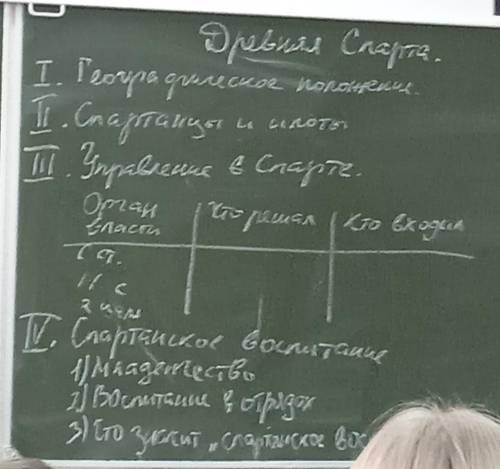 Древняя Спарта.
I. Географическое положение.
II. Спартанцы и илоты
III. Управление в Спарте.
Орган власти | Что решал | Кто входил
IV. Спартанское воспитание
1) Младенчество
2) Воспитание в отрядах
3) Что значит „спартанское вос